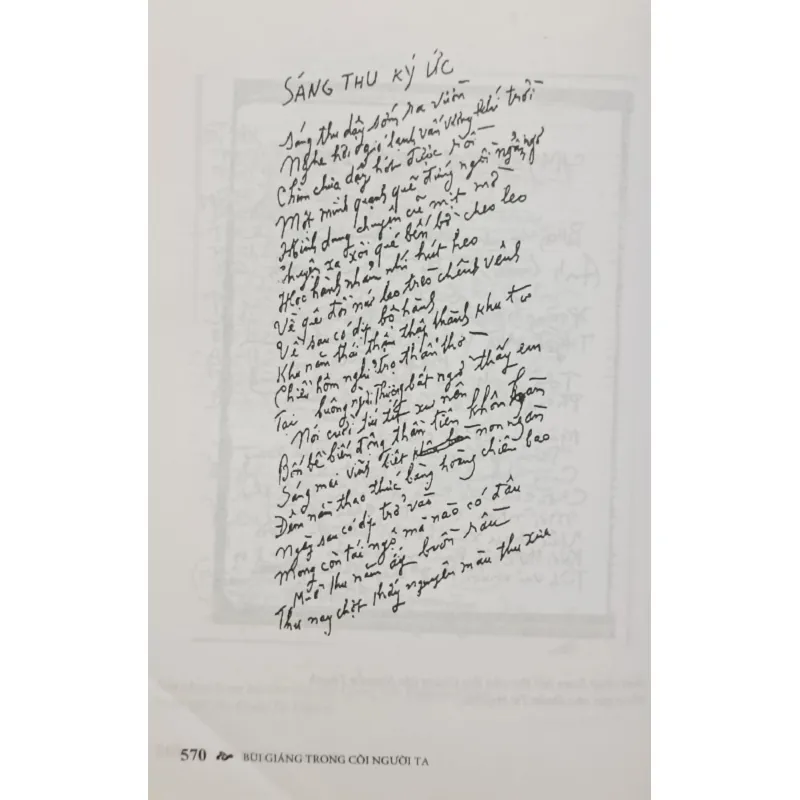 SÁNG THU KÝ ỨC
Sáng thu dậy sớm ra vườn
Nghe hơi gió lạnh vấn vương khí trời
Chim chưa dậy hót được rồi
Một mình quạnh quẽ đứng ngồi ngẩn ngơ
Hình dong chuyện cũ mịt mờ
Chuyện xa xôi quá bến bờ cheo leo
Học hành nhảm nhí hút heo
Về quê đồi núi leo trèo chênh vênh
Về sau có dịp bộ hành
Khu năm thái thậm thập thành khu tư
Chiều hôm nghỉ trọ thẩn thơ
Tai buông ngài bất ngờ thấy em
Nói cười tíu tít xư nên
Bốn bề biến động thần tiên khôn hàn
Sáng mai vĩnh biệt non ngàn
Đêm nằm thao thức bàng hoàng chiêm bao
Ngày sau có dịp trở vào
Mong còn tái ngộ mà nào có đâu
Mùa thu năm ấy buồn rầu
Thu nay chợt thấy nguyên màu thu xưa
570 BÙI GIÁNG TRONG CÕI NGƯỜI TA